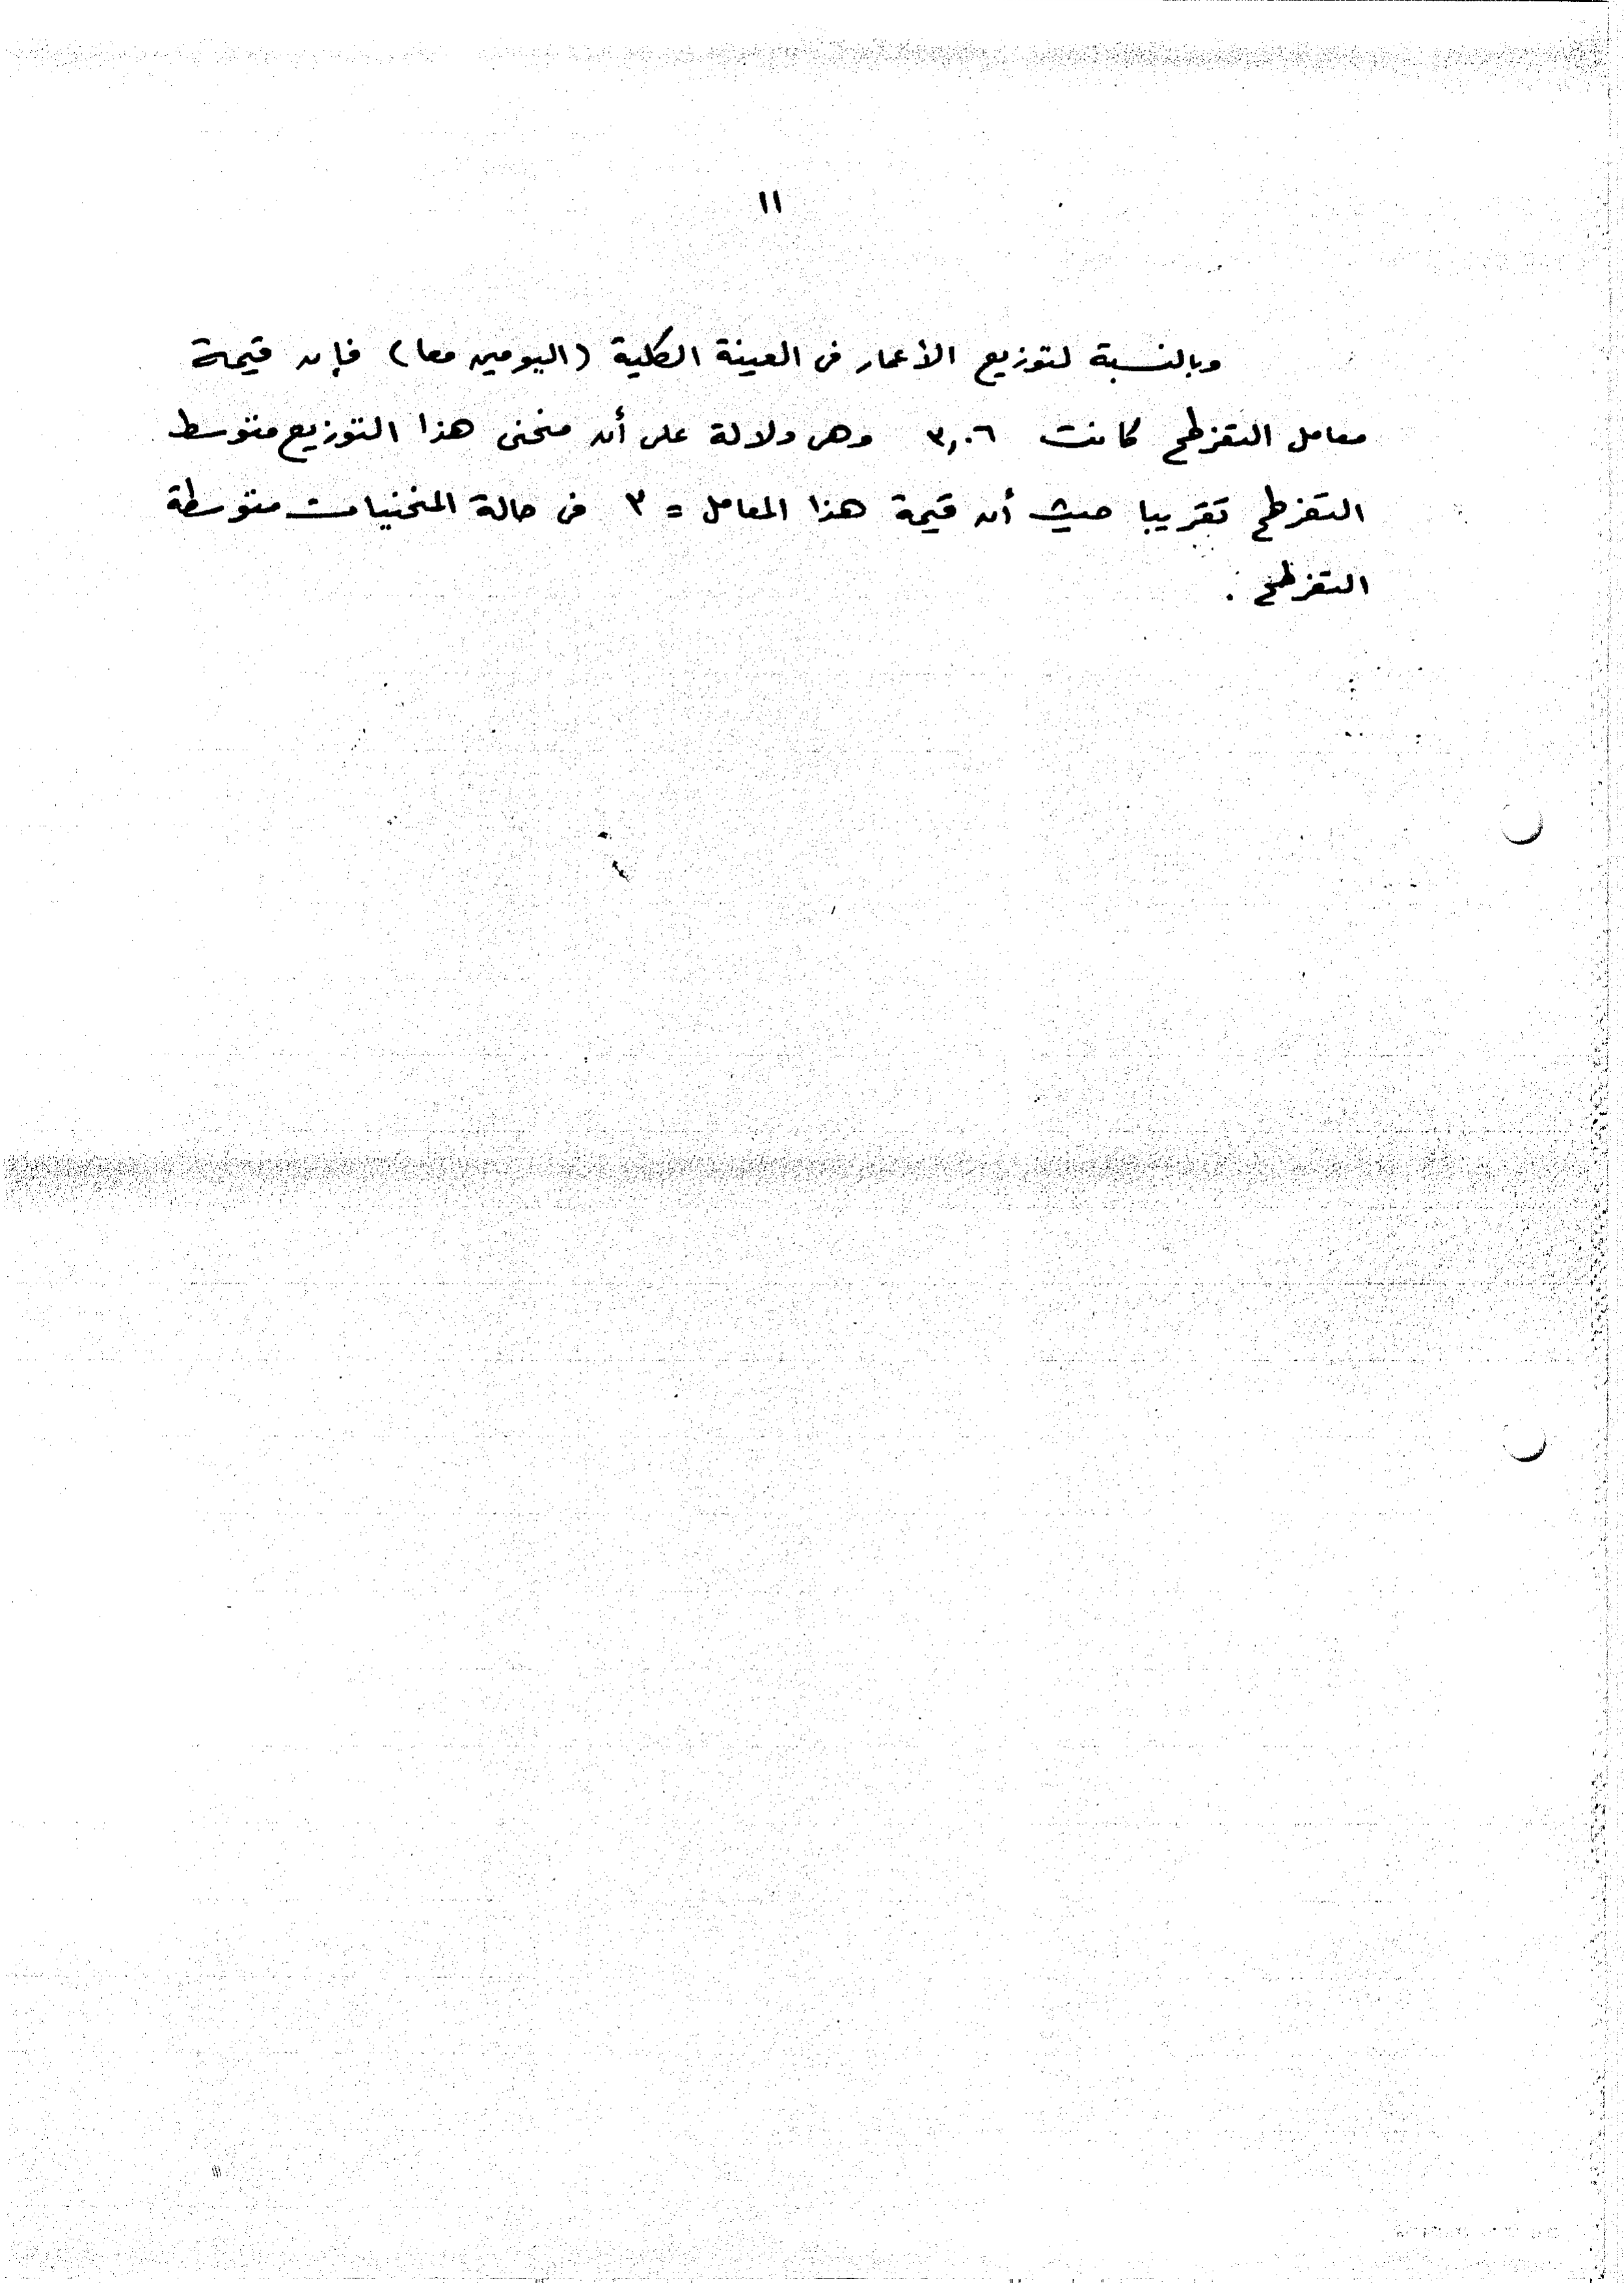 ١١
وبالنسبة لتوزيع الأعمار فى العينة الكلية (اليومين معا) فإن قيمة
معامل التفرطح كانت ٣,٠٦ وهى دلالة على أن منحنى هذا التوزيع متوسط
التفرطح تقريبا حيث أن قيمة هذا المعامل = ٣ فى حالة المنحنيات متوسطة
التفرطح .